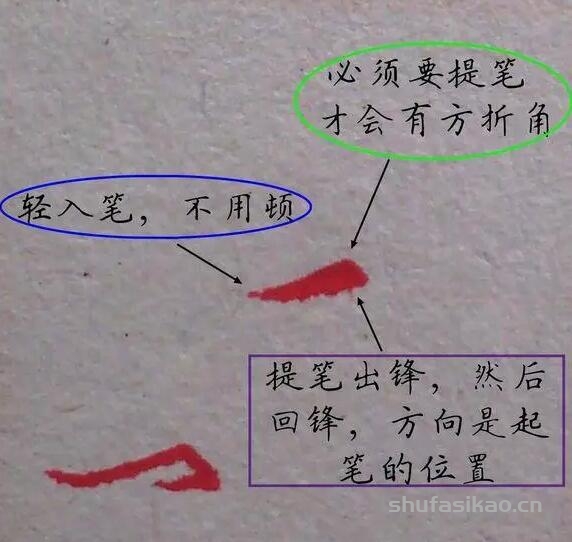 必须要提笔
才会有方折角
轻入笔，不用顿
提笔出锋，然后
回锋，方向是起
笔的位置
shufasikao.cn